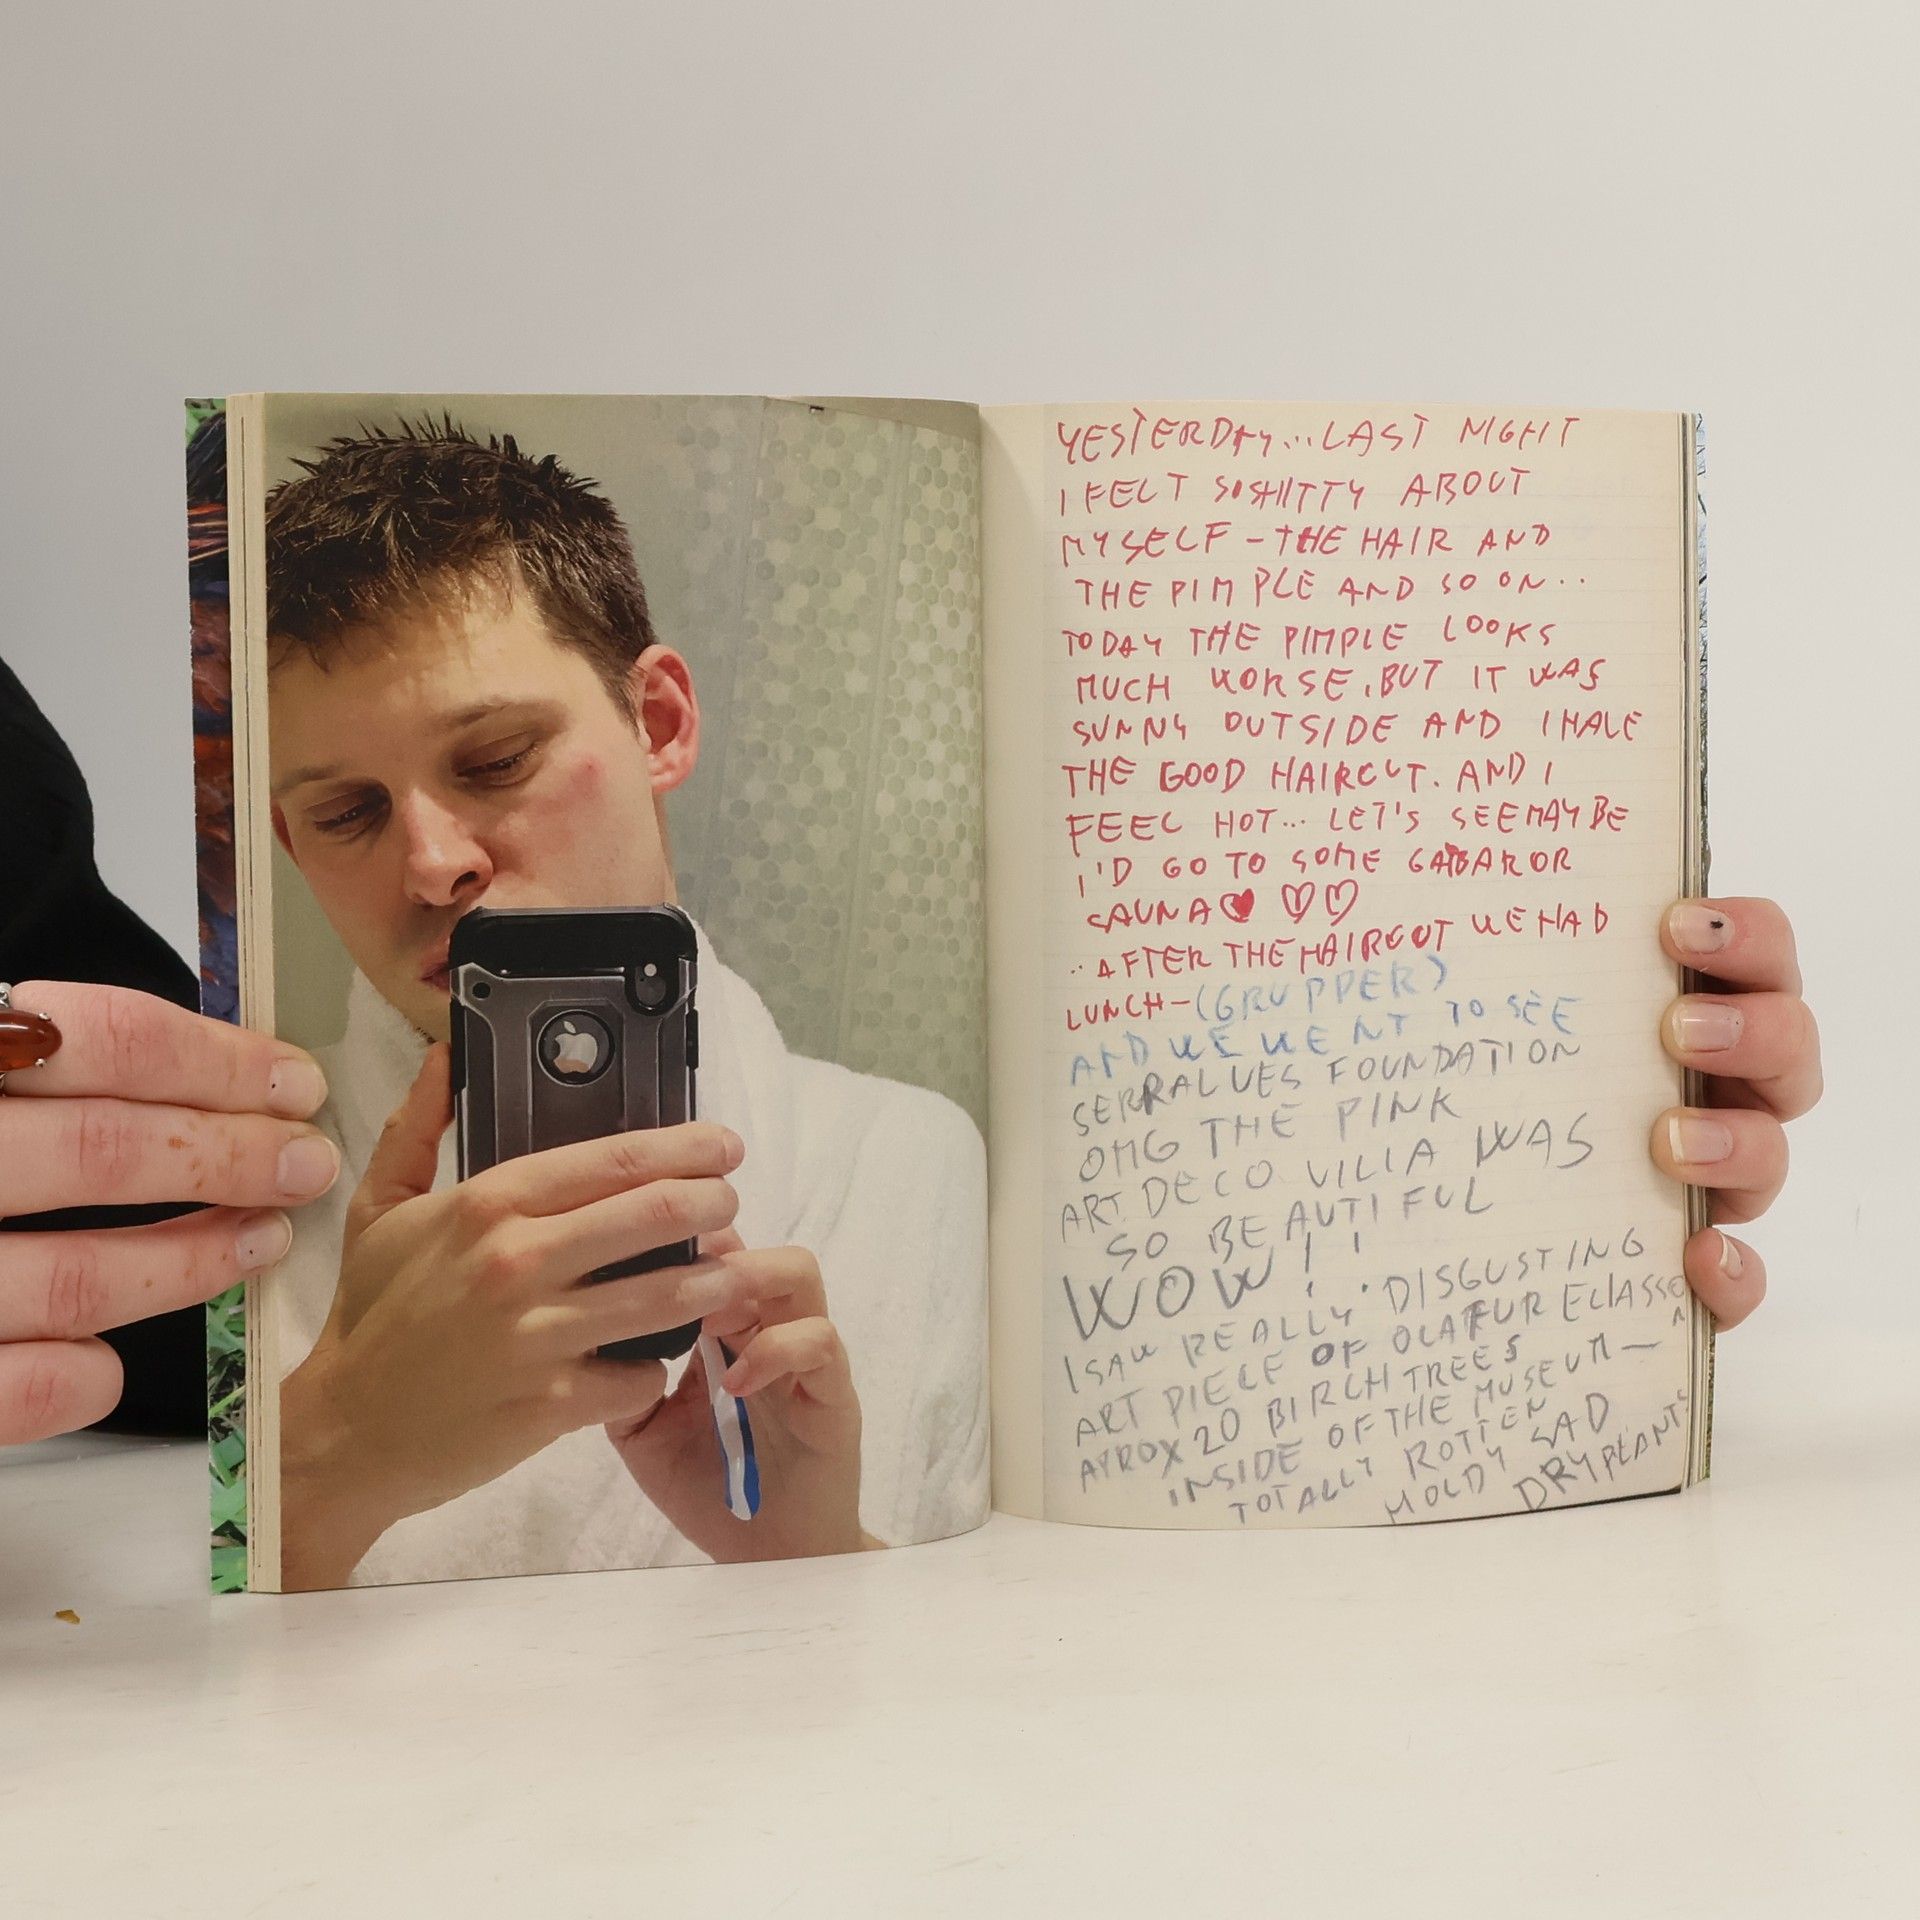 YESTERDAY...LAST NIGHT
I FELT SO SHITTY ABOUT
MYSELF - THE HAIR AND
THE PIMPLE AND SO ON..
TODAY THE PIMPLE LOOKS
MUCH WORSE, BUT IT WAS
SUNNY OUTSIDE AND I HALE
THE GOOD HAIRCUT. AND I
FEEL HOT... LET'S SEE MAYBE
I'D GO TO SOME GABAR OR
SAUNA ♥ ♡♡
..AFTER THE HAIRCUT WE HAD
LUNCH - (GRUPPER)
AND WE WENT TO SEE
SERRALVES FOUNDATION
OMG THE PINK
ART DECO VILLA WAS
SO BEAUTIFUL
WOW!!
I SAW REALLY DISGUSTING
ART PIECE OF OLAFUR ELIASSON
APROX 20 BIRCH TREES
INSIDE OF THE MUSEUM —
TOTALLY ROTTEN
MOLDY SAD
DRY PLANTS